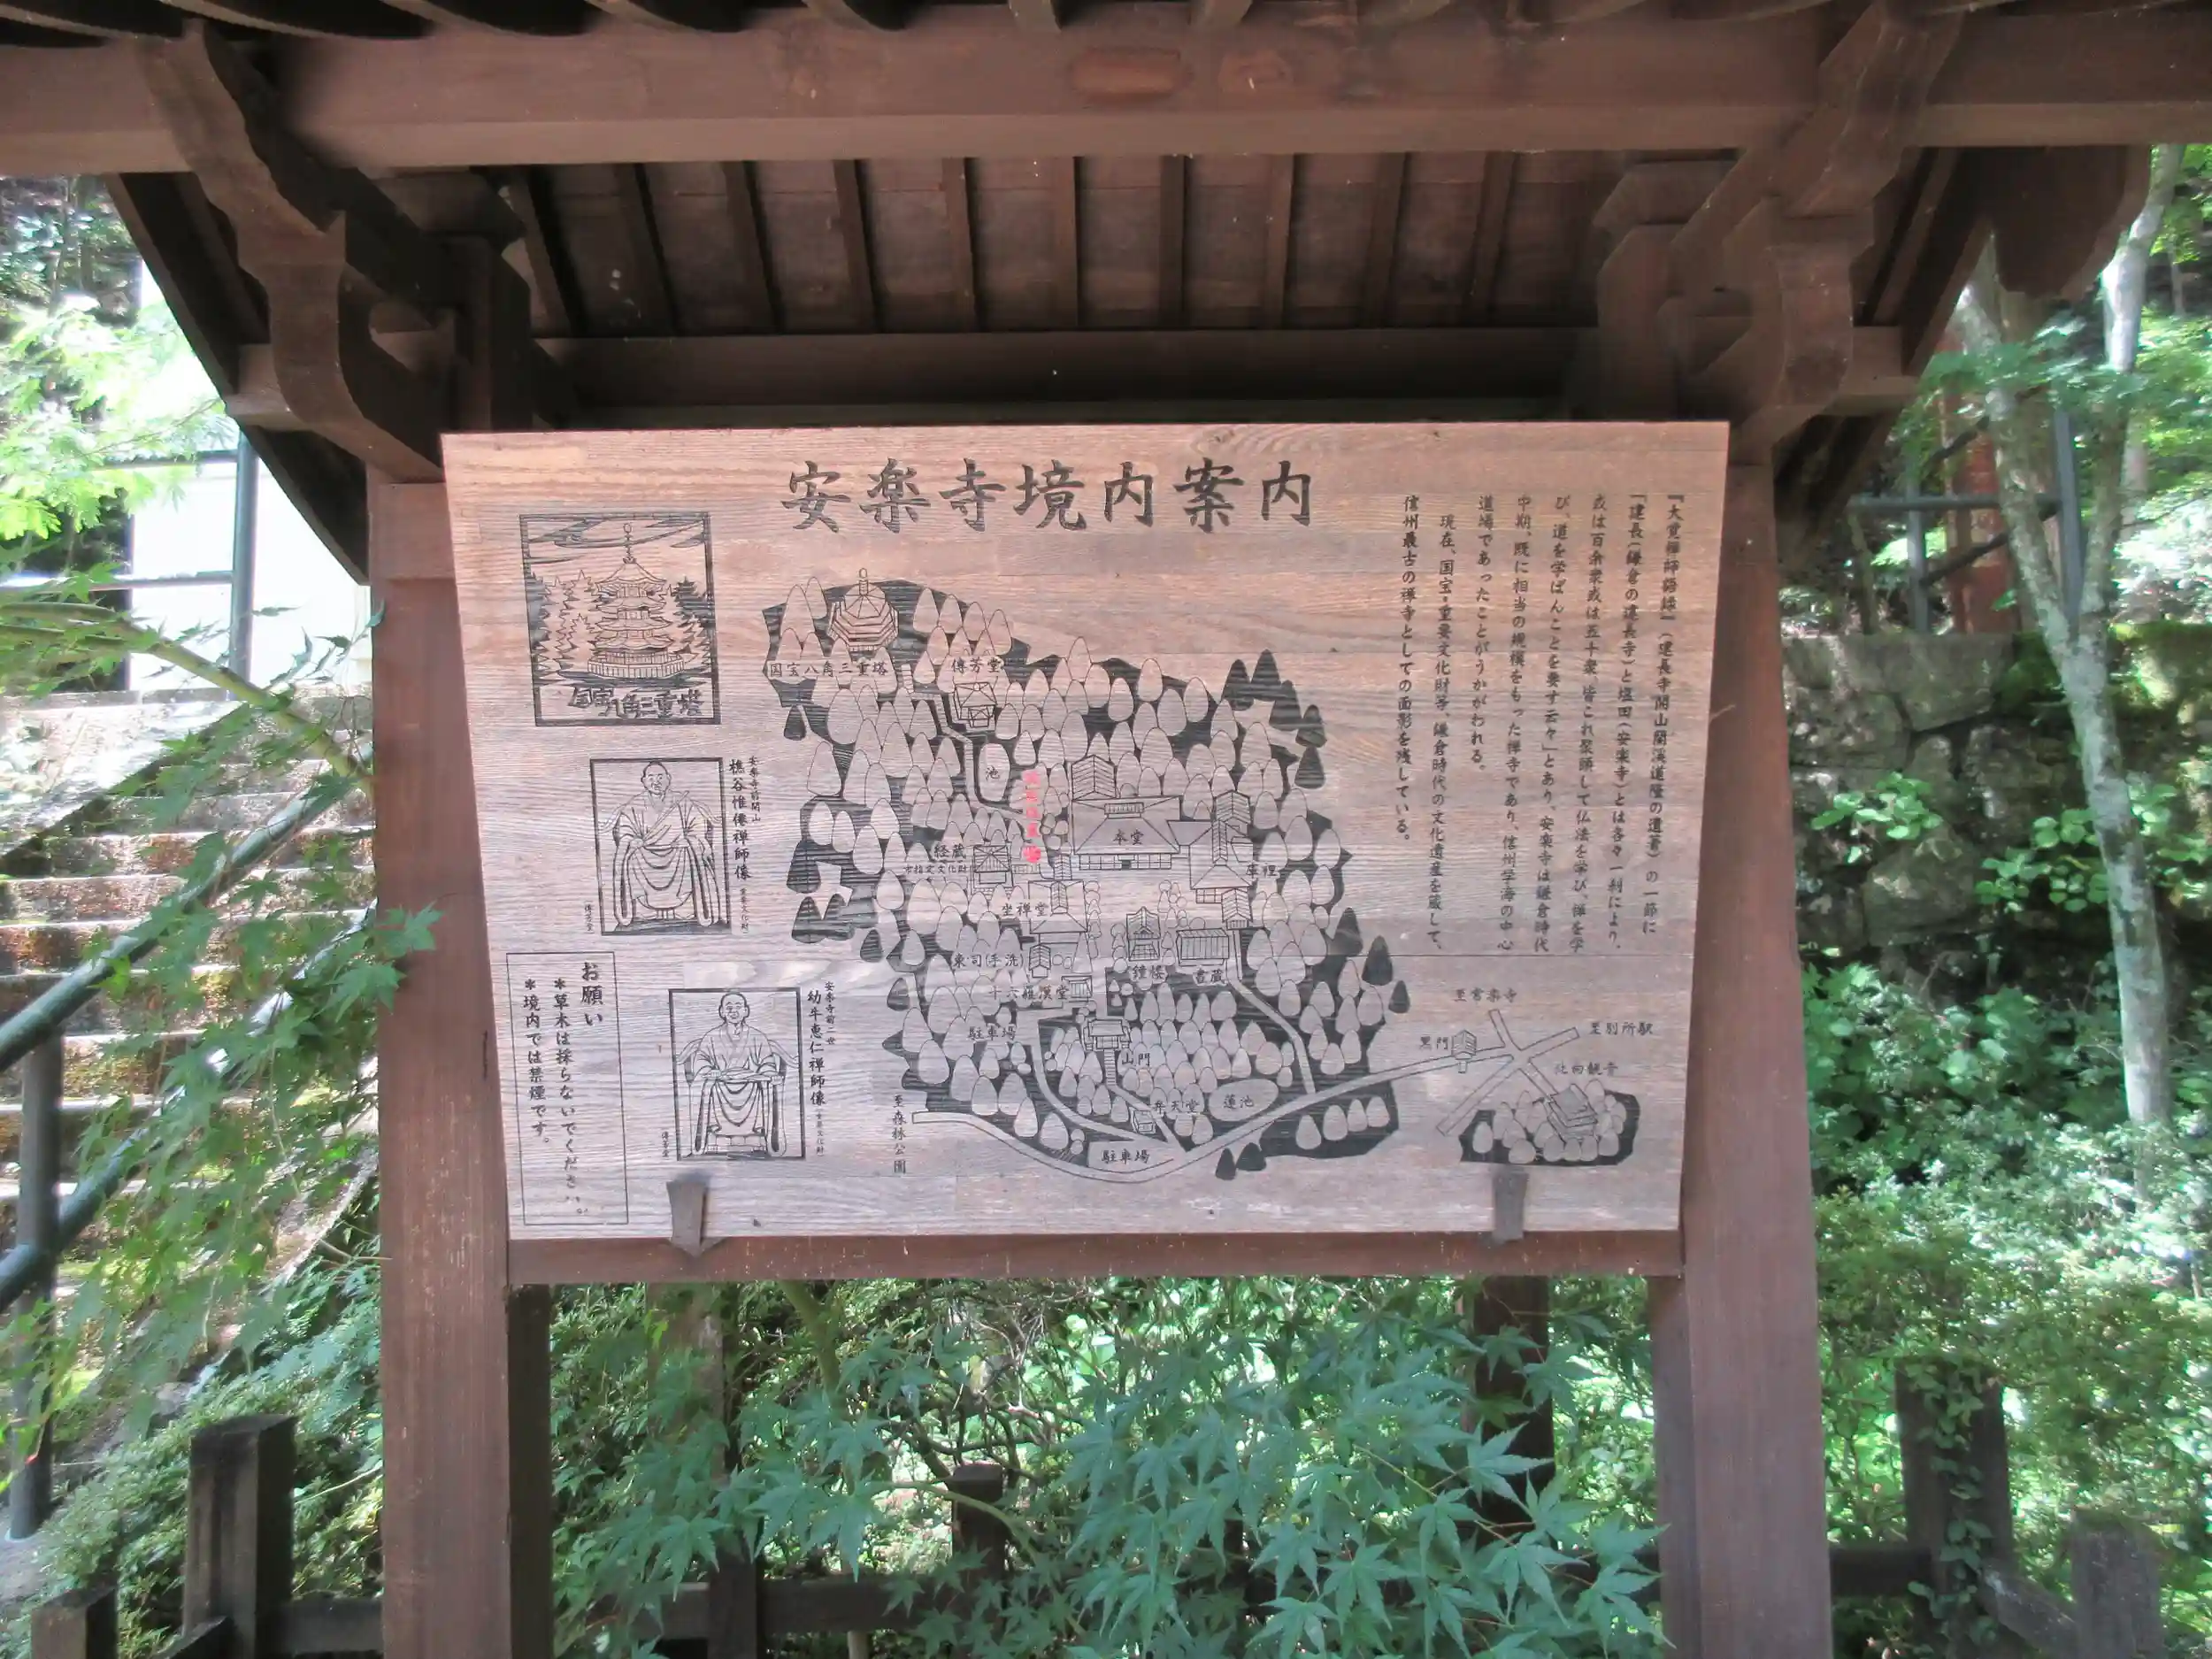 安楽寺境内案内
『大覚禅師語録』(建長寺開山蘭溪道隆の遺著)の一節に
「建長(鎌倉の建長寺)と塩田(安楽寺)とは各々一刹により、
或は百余衆或は五十衆、皆これ聚頭して仏法を学び、禅を学
び、道を学ばんことを要す云々」とあり、安楽寺は鎌倉時代
中期、既に相当の規模をもった禅寺であり、信州学海の中心
道場であったことがうかがわれる。
現在、国宝・重要文化財等、鎌倉時代の文化遺産を蔵して、
信州最古の禅寺としての面影を残している。
国宝八角三重塔
安楽寺前開山
樵谷惟僊禅師像
重要文化財
傳芳堂
安楽寺前二世
幼牛恵仁禅師像
重要文化財
傳芳堂
お願い
*草木は採らないでください。
*境内では禁煙です。
国宝八角三重塔
傳芳堂
池
本堂
経蔵
市指定文化財
庫裡
坐禅堂
東司(手洗)
鐘楼
書蔵
十六羅漢堂
駐車場
山門
弁天堂
蓮池
駐車場
至森林公園
至常楽寺
至別所駅
黒門
北向観音